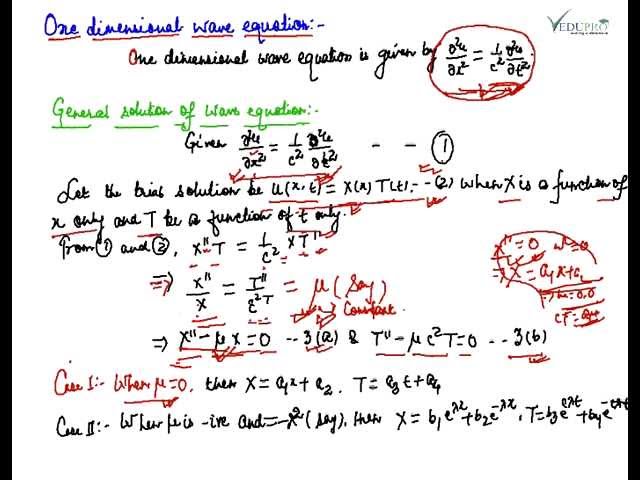 One dimensional wave equation:-
VEDUPRO
One dimensional wave equation is given by ∂²u/∂x² = 1/c² ∂²u/∂t²
General solution of wave equation:-
Given ∂²u/∂x² = 1/c² ∂²u/∂t² - - ①
Let the trial solution be u(x,t) = X(x) T(t) - - (2) where X is a function of
x only and T be a function of t only.
From ① and ②, X''T = 1/c² XT''
X'' = 0
⇒ X = a₁x + a₂
⇒ X''/X = T''/c²T = μ (Say)
Constant
⇒ m = 0,0
⇒ X'' - μX = 0 - - 3(a) & T'' - μc²T = 0 - - 3(b)
Case I:- When μ=0, then X = a₁x + a₂, T = a₃t + a₄
Case II:- When μ is -ive and = -λ² (say), then X = b₁e^λx + b₂e^-λx, T = b₃e^cλt + b₄e^-cλt